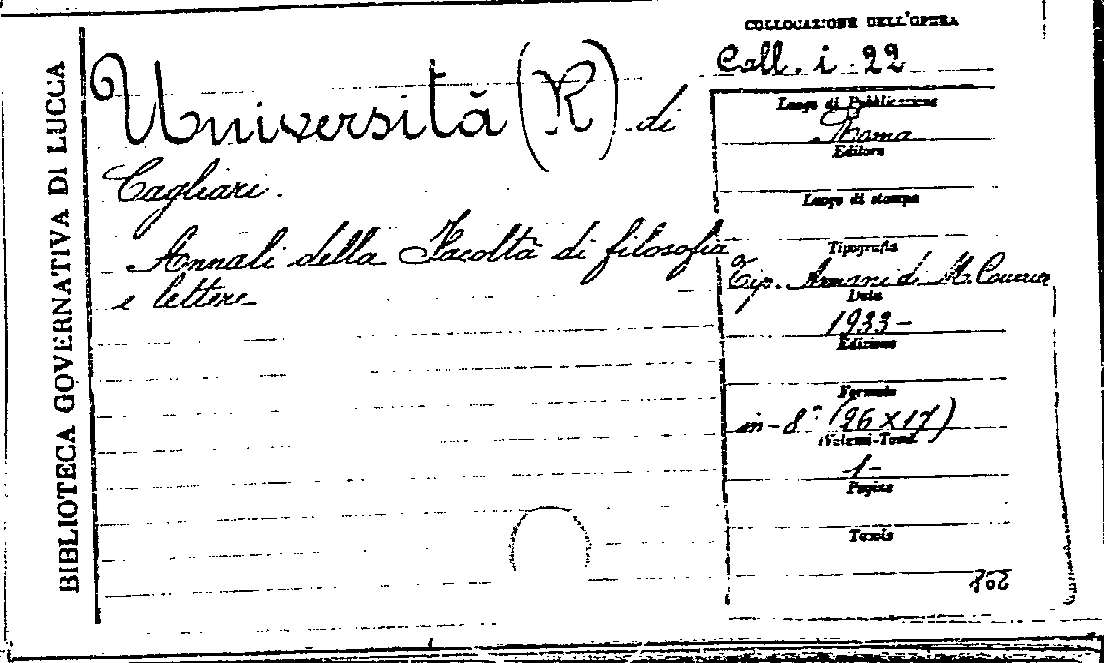 BIBLIOTECA GOVERNATIVA DI LUCCA
Università (R) di
Cagliari.
Annali della Facoltà di filosofia
e lettere
COLLOCAZIONE DELL'OPERA
Coll. i. 22
Luogo di Pubblicazione
Roma
Editore
Luogo di stampa
Tipografia
Tip. Armani di M. Courrier
Data
1933-
Edizione
Formato
in-8° (26 x 17)
Volumi-Tomi
1-
Pagine
Tavole